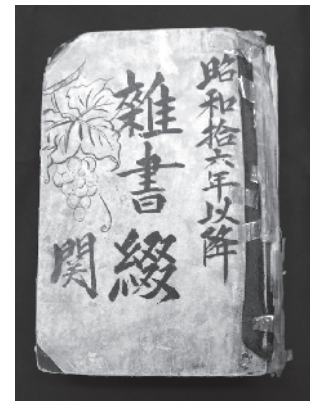 昭和拾六年以降
雑書綴
関